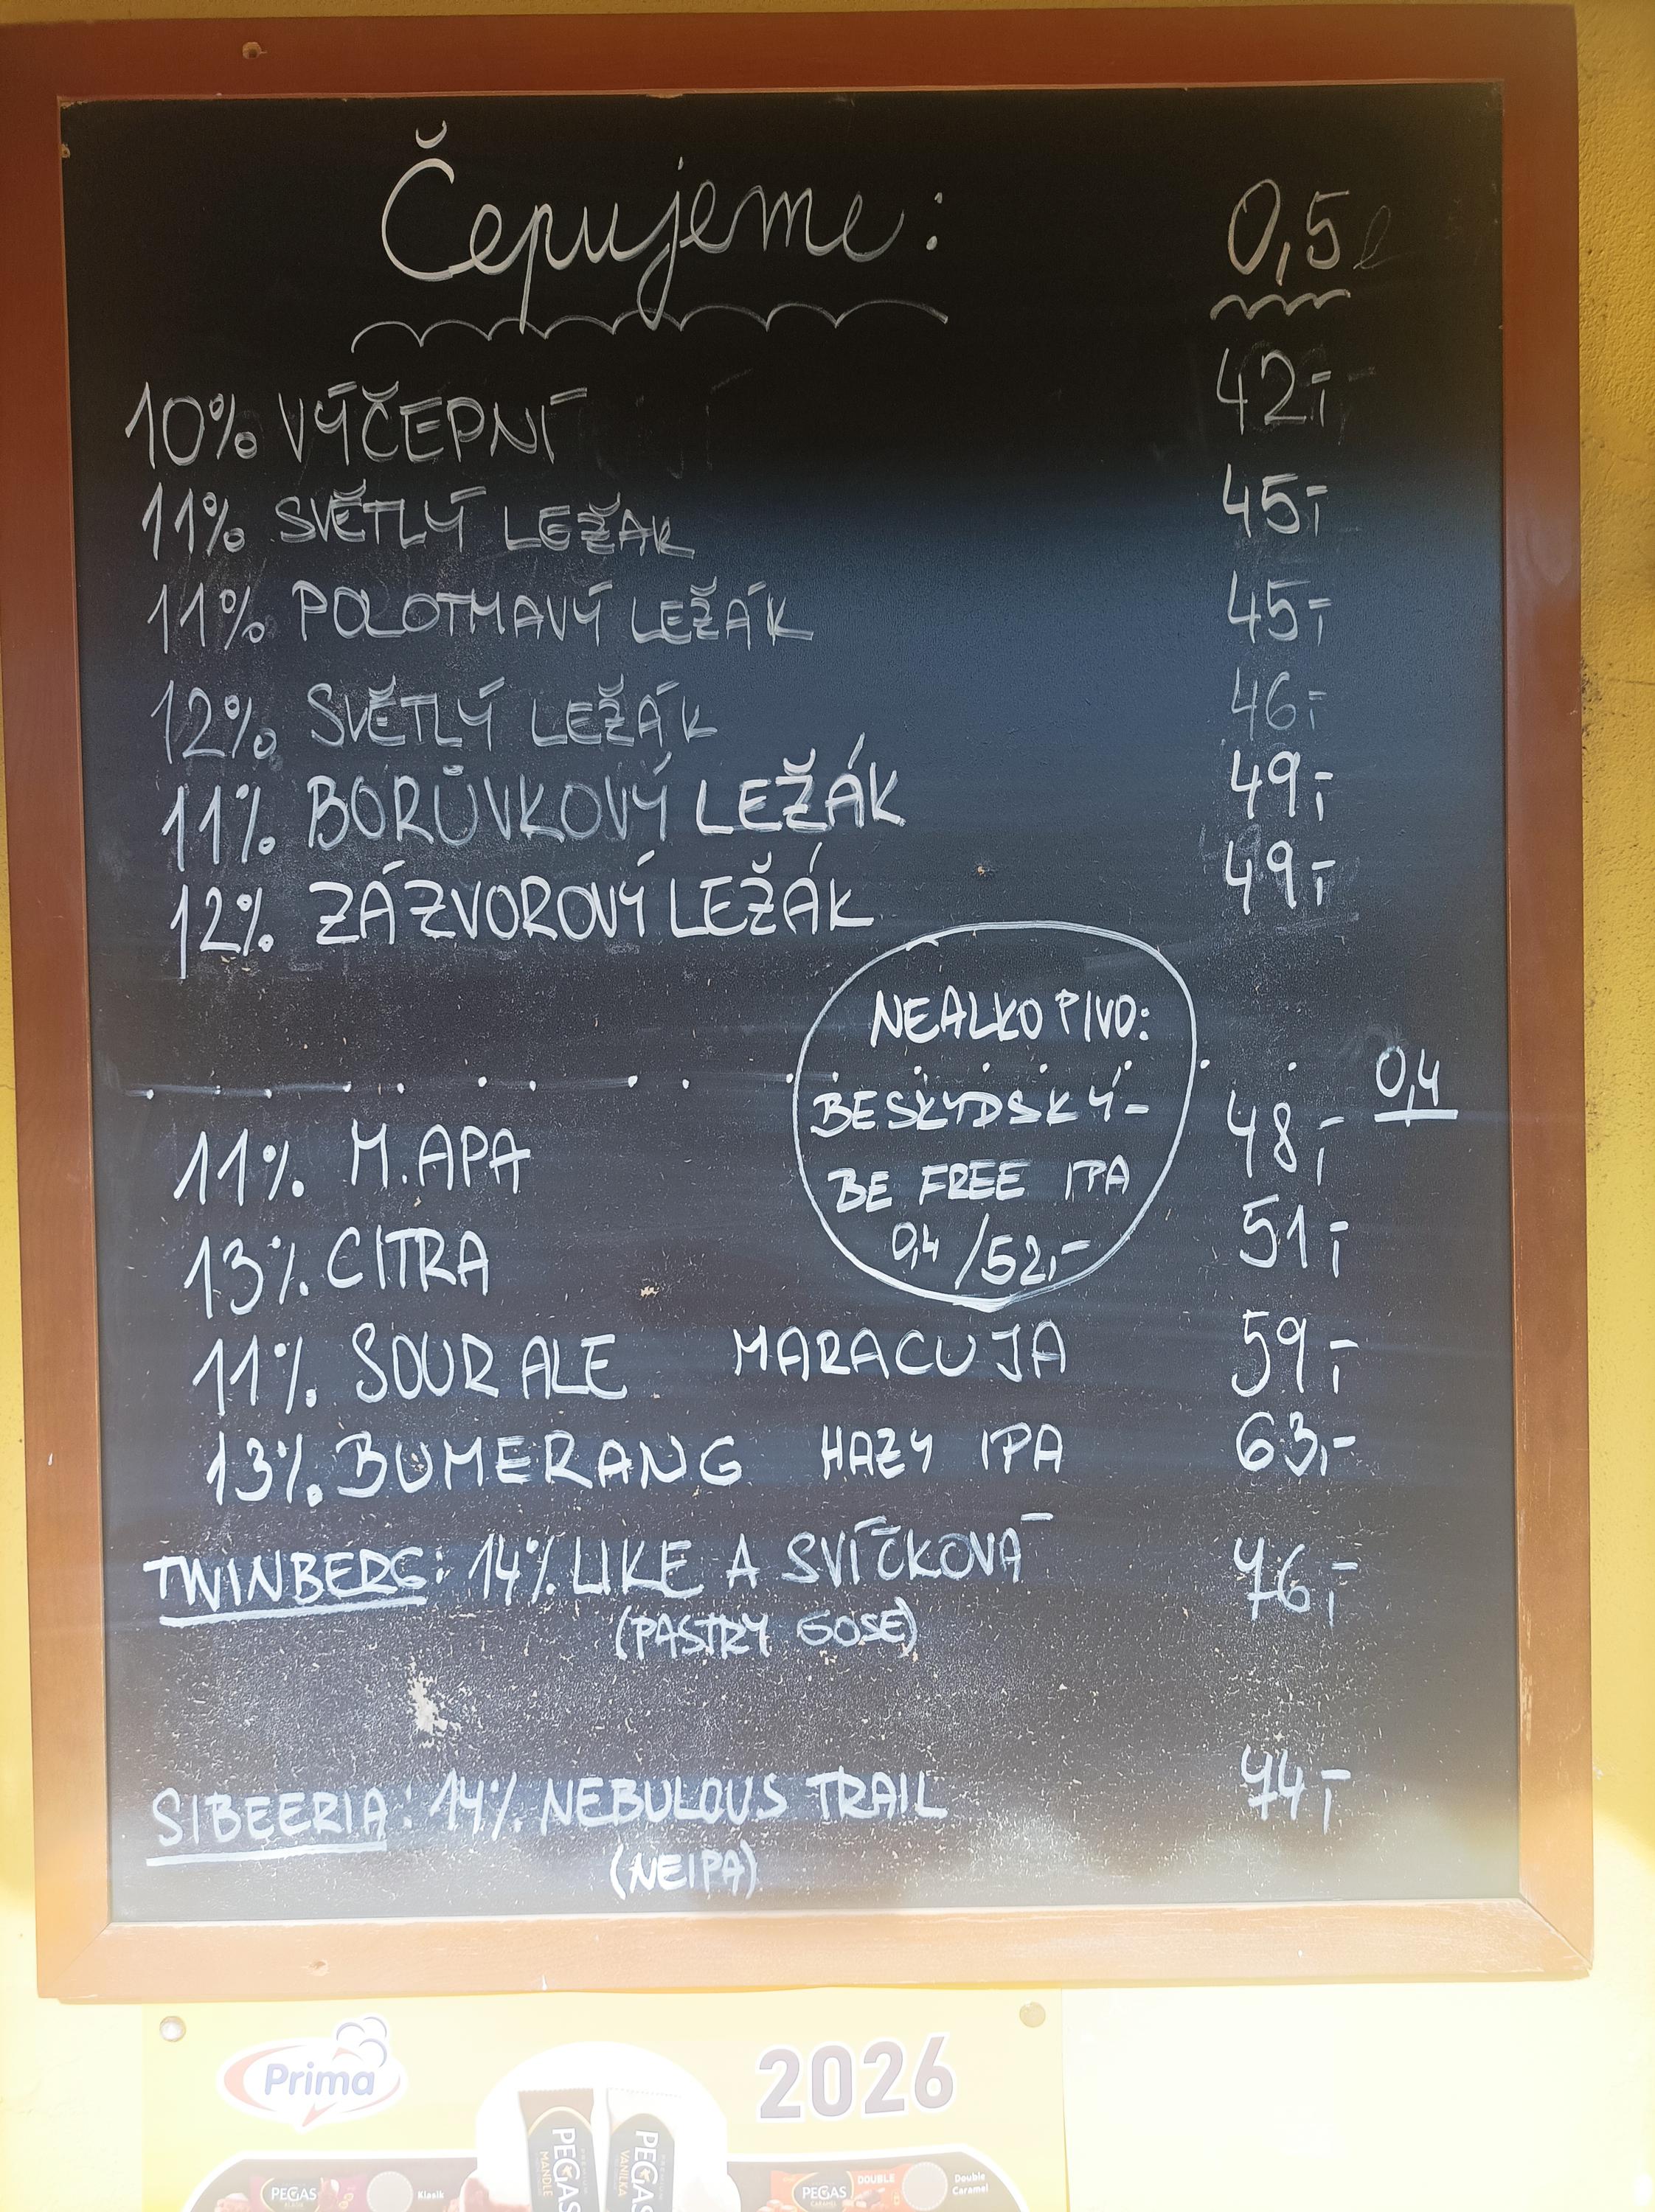 Čepujeme: 0,5 l
10% VÝČEPNÍ 42,-
11% SVĚTLÝ LEŽÁK 45,-
11% POLOTMAVÝ LEŽÁK 45,-
12% SVĚTLÝ LEŽÁK 46,-
11% BORŮVKOVÝ LEŽÁK 49,-
12% ZÁZVOROVÝ LEŽÁK 49,-
NEALKO PIVO:
BESKYDSKÝ-
BE FREE IPA
0,4 /52,-
0,4
11% M.APA 48,-
13% CITRA 51,-
11% SOUR ALE MARACUJA 59,-
13% BUMERANG HAZY IPA 63,-
TWINBERG: 14% LIKE A SVÍČKOVÁ 76,-
(PASTRY GOSE)
SIBEERIA: 14% NEBULOUS TRAIL 74,-
(NEIPA)
Prima 2026
PEGAS MANDLE
PEGAS VANILKA
PEGAS
Klasik
DOUBLE
PEGAS
Double
Caramel